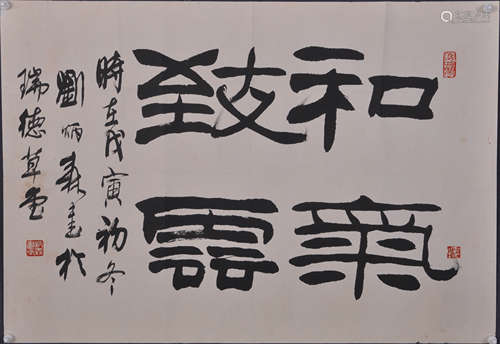 和氣
致雲
時在戊寅初冬
劉炳森書於
瑞德草堂